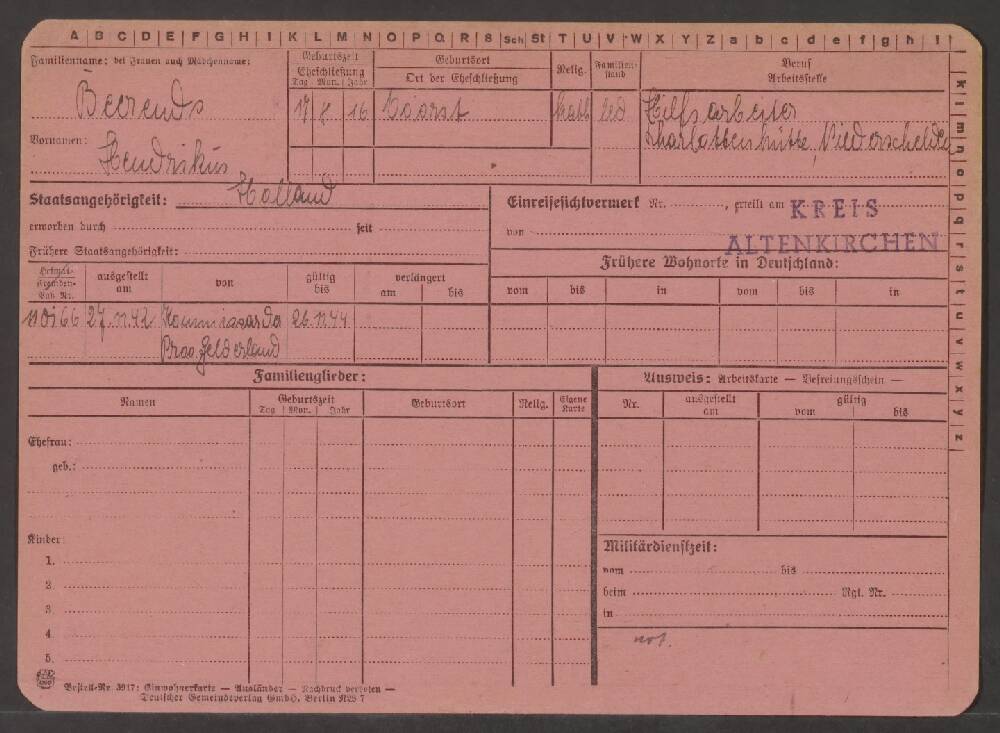 A B C D E F G H I K L M N O P Q R S Sch St T U V W X Y Z a b c d e f g h i
k l m n o p q r s t u v w x y z
Familienname: bei Frauen auch Mädchenname:
Beerends
Vornamen:
Hendrikus
Geburtszeit
Eheschließung
Tag Mon. Jahr
17 8 16
Geburtsort
Ort der Eheschließung
Relig.
kath
Familienstand
led
Beruf
Arbeitsstelle
Hilfsarbeiter
Charlottenhütte, Niederschelden
Staatsangehörigkeit: Holland
erworben durch seit
Frühere Staatsangehörigkeit:
Einreisesichtvermerk Nr. , erteilt am
von
KREIS
ALTENKIRCHEN
Frühere Wohnorte in Deutschland:
vom bis in vom bis in
Heimat-
Fremden-
Paß Nr.
ausgestellt am
von
gültig bis
verlängert
am bis
27.11.42 26.11.44
Prov. Gelderland
Familienglieder:
Namen
Geburtszeit
Tag Mon. Jahr
Geburtsort
Relig.
Eigene Karte
Ehefrau:
geb.:
Kinder:
1.
2.
3.
4.
5.
Ausweis: Arbeitskarte — Befreiungsschein —
Nr.
ausgestellt am
gültig
vom bis
Militärdienstzeit:
vom bis
beim Rgt. Nr.
in
Bestell-Nr. 3917: Einwohnerkarte — Ausländer — Nachdruck verboten —
Deutscher Gemeindeverlag GmbH. Berlin NW 7